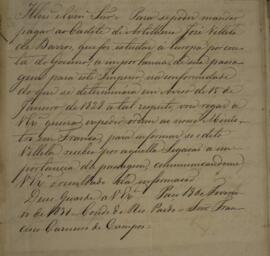 Illmo e Exmo Snr = Para se poder mandar
pagar ao Cadete de Artilheria José Villela
de Barros, que foi estudar a Europa por con-
ta do Governo, a importancia de sua passa-
gem para este Imperio, na conformidade
do que se determinára em Aviso de 15 de
Janeiro de 1828 a tal respeito, vou rogar a
V Exa queira expedir ordem ao nosso Minis-
tro em França para informar se o dito
Villela recebeo por aquella Legação a im-
portancia da passagem, communicando-me
V Exa o resultado da informação
Deus Guarde a V Exa Paço
de 1831 = Conde do Rio Pardo = Snr Fran-
cisco Carneiro de Campos =